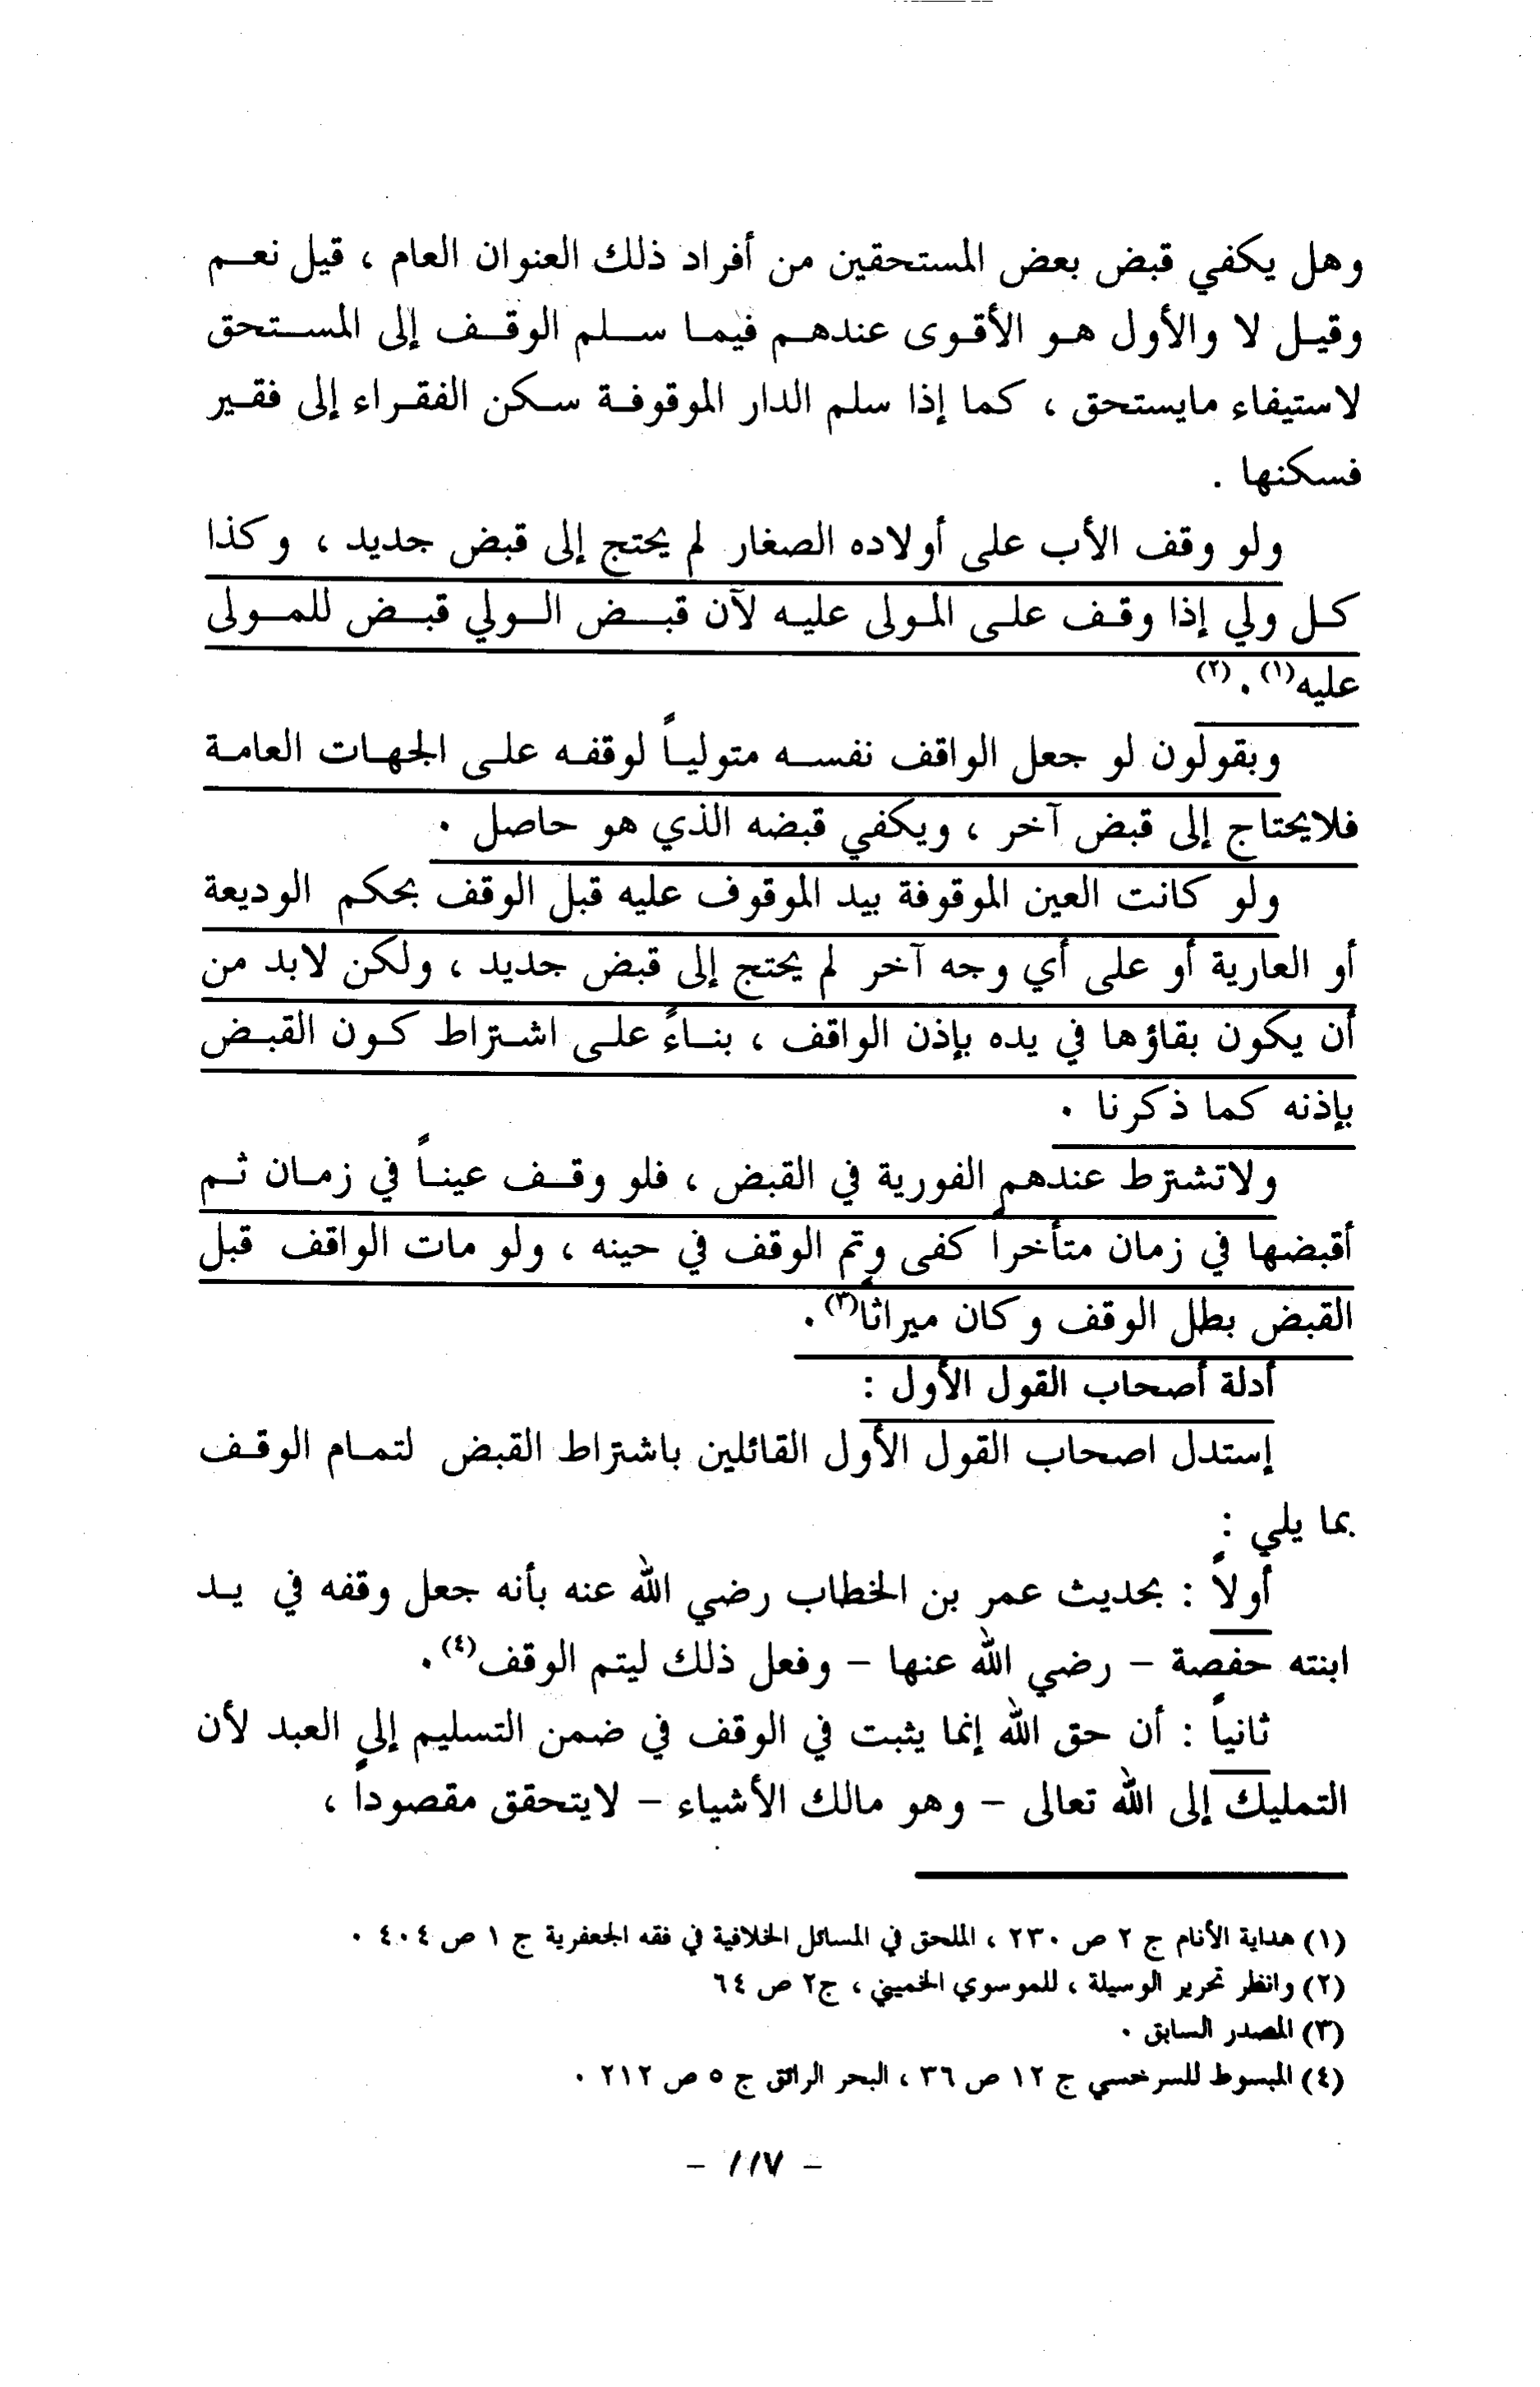 وهل يكفي قبض بعض المستحقين من أفراد ذلك العنوان العام ، قيل نعم
وقيل لا والأول هو الأقوى عندهم فيما سلم الوقف إلى المستحق
لاستيفاء مايستحق ، كما إذا سلم الدار الموقوفة سكن الفقراء إلى فقير
فسكنها .
ولو وقف الأب على أولاده الصغار لم يحتج إلى قبض جديد ، وكذا
كل ولي إذا وقف على المولى عليه لآن قبض الولي قبض للمولى
عليه(١) . (٢)
ويقولون لو جعل الواقف نفسه متولياً لوقفه على الجهات العامة
فلايحتاج إلى قبض آخر ، ويكفي قبضه الذي هو حاصل .
ولو كانت العين الموقوفة بيد الموقوف عليه قبل الوقف بحكم الوديعة
أو العارية أو على أي وجه آخر لم يحتج إلى قبض جديد ، ولكن لابد من
أن يكون بقاؤها في يده بإذن الواقف ، بناءً على اشتراط كون القبض
بإذنه كما ذكرنا .
ولاتشترط عندهم الفورية في القبض ، فلو وقف عيناً في زمان ثم
أقبضها في زمان متأخراً كفى وتم الوقف في حينه ، ولو مات الواقف قبل
القبض بطل الوقف وكان ميراثا(٣) .
أدلة أصحاب القول الأول :
إستدل اصحاب القول الأول القائلين باشتراط القبض لتمام الوقف
بما يلي :
أولاً : بحديث عمر بن الخطاب رضي الله عنه بأنه جعل وقفه في يد
ابنته حفصة - رضي الله عنها - وفعل ذلك ليتم الوقف(٤) .
ثانياً : أن حق الله إنما يثبت في الوقف في ضمن التسليم إلى العبد لأن
التمليك إلى الله تعالى - وهو مالك الأشياء - لايتحقق مقصوداً ،
(١) هداية الأنام ج ٢ ص ٢٣٠ ، الملحق في المسائل الخلافية في فقه الجعفرية ج ١ ص ٤٠٤ .
(٢) وانظر تحرير الوسيلة ، للموسوي الخميني ، ج٢ ص ٦٤
(٣) المصدر السابق .
(٤) المبسوط للسرخسي ج ١٢ ص ٣٦ ، البحر الرائق ج ٥ ص ٢١٢ .
- ١١٧ -